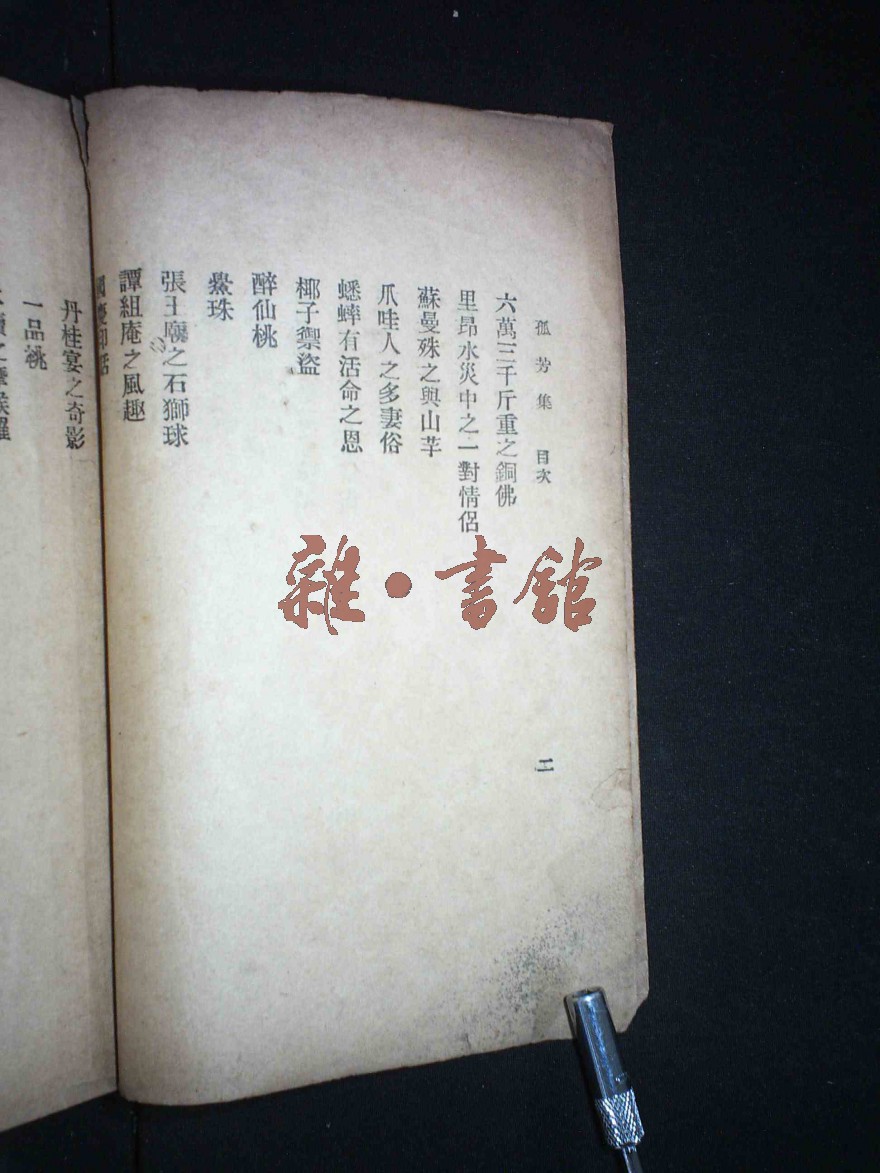 孤芳集 目次
六萬三千斤重之銅佛
里昂水災中之一對情侶
蘇曼殊之與山芋
爪哇人之多妻俗
蟋蟀有活命之恩
椰子禦盜
醉仙桃
鱟珠
張王廟之石獅球
譚組庵之風趣
丹桂宴之奇影
一品桃
二
雜·書館